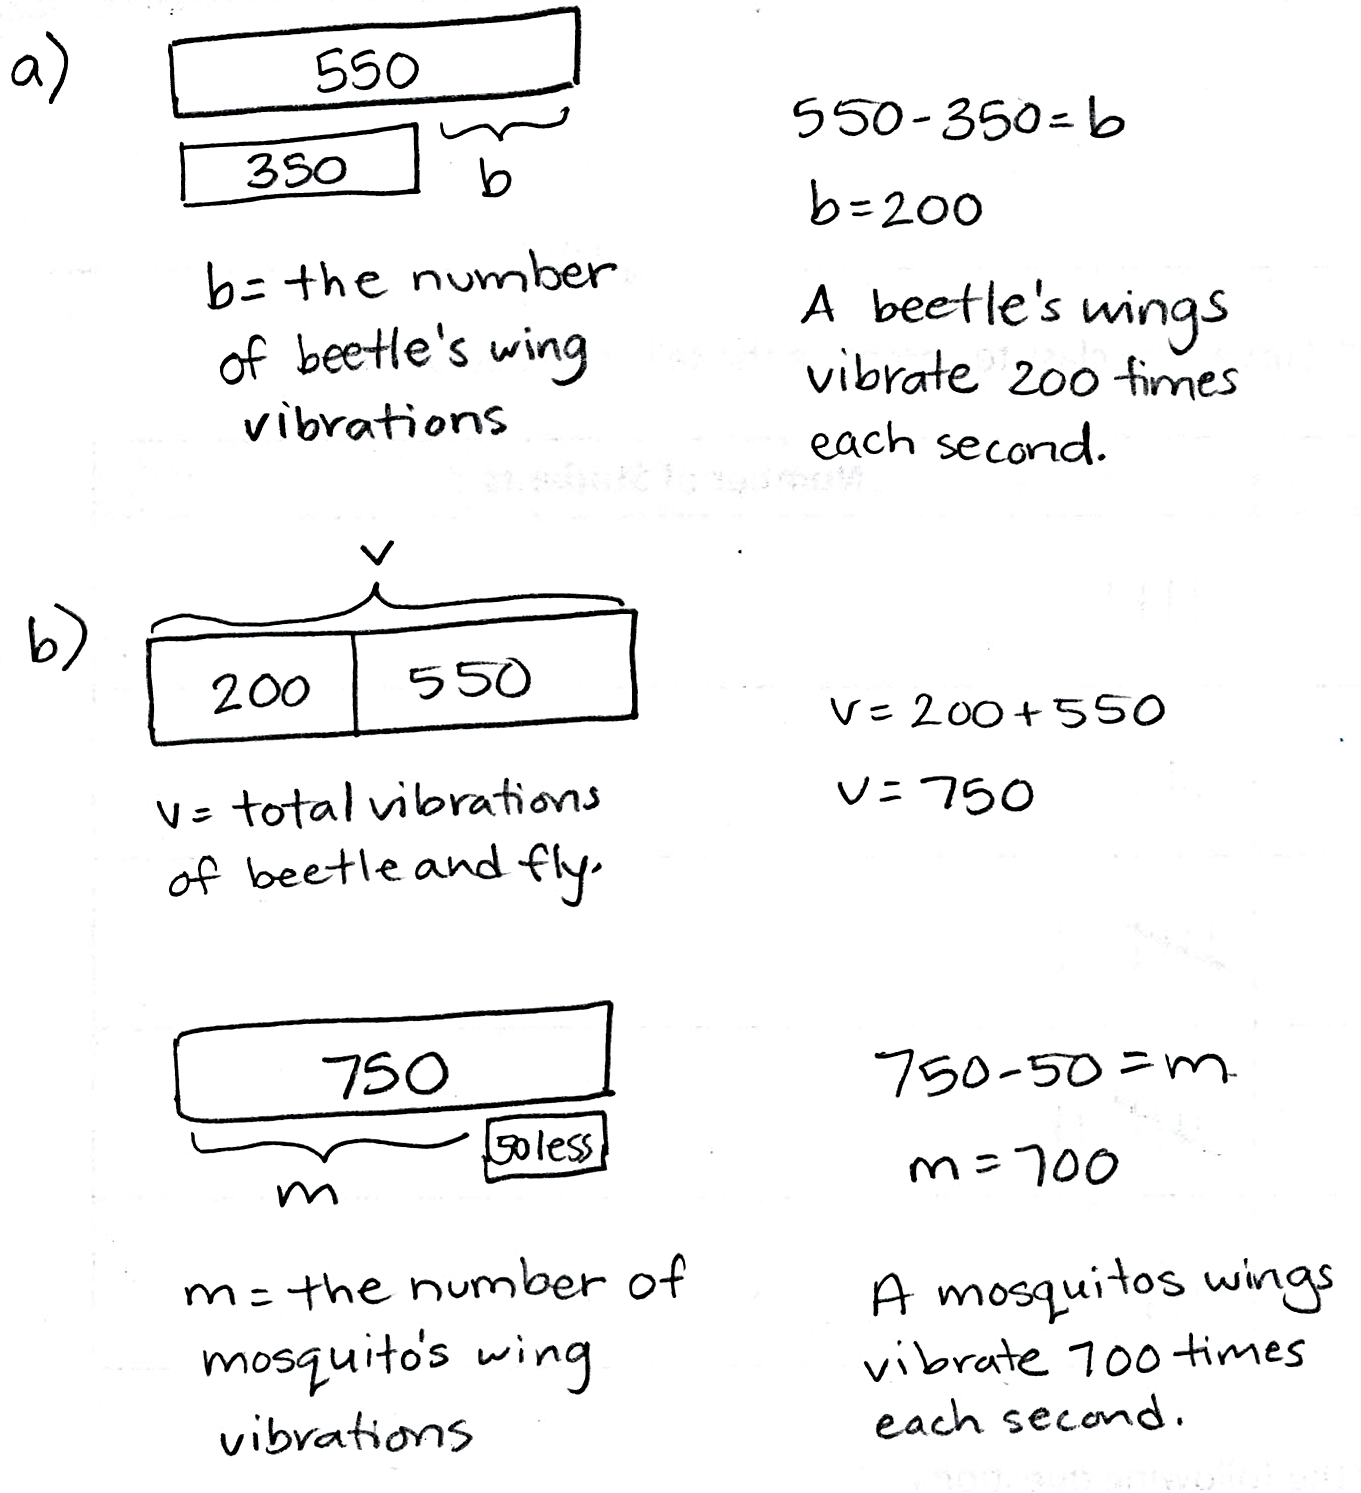 a)
550
350
b
b= the number
of beetle's wing
vibrations
550-350=b
b=200
A beetle's wings
vibrate 200 times
each second.
b)
v
200 550
v= total vibrations
of beetle and fly.
v= 200+550
v= 750
750
50 less
m
m= the number of
mosquito's wing
vibrations
750-50=m
m=700
A mosquitos wings
vibrate 700 times
each second.